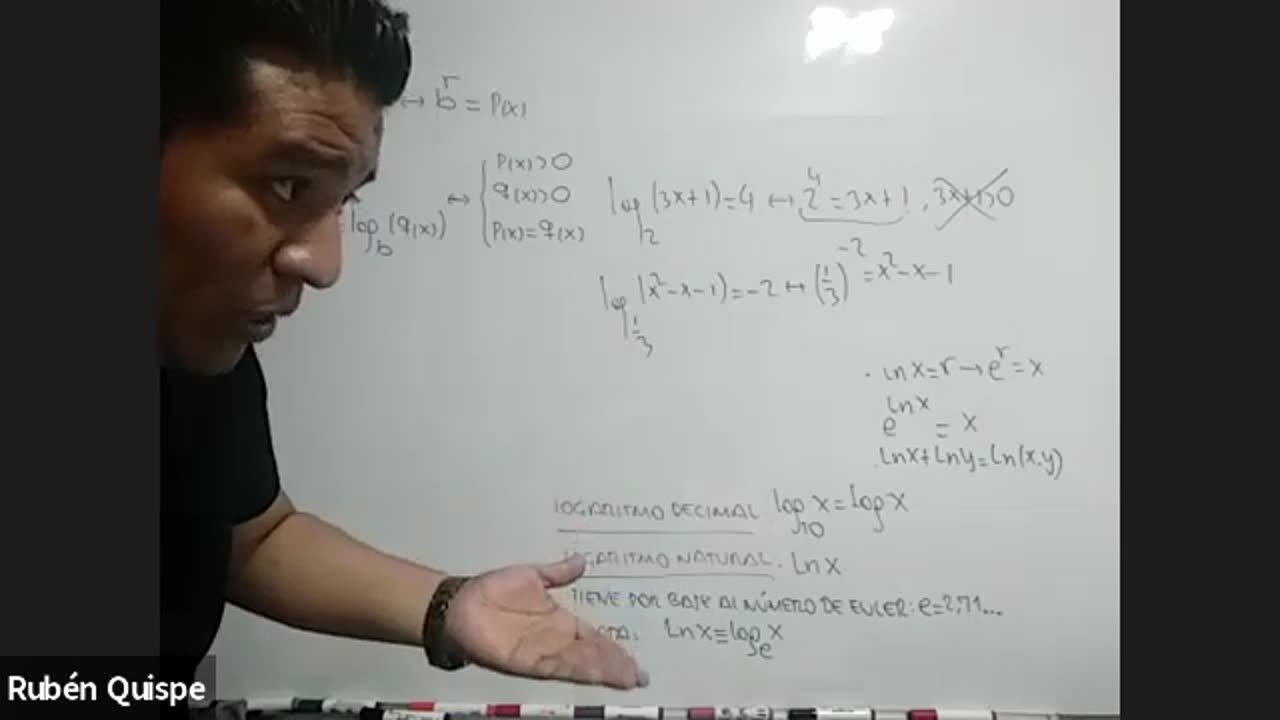 ↔ b^r = P(x)
log_b (q(x)) ↔ { P(x)>0
q(x)>0
P(x)=q(x)
log_2 (3x+1)=4 ↔ 2^4 = 3x+1, 3x+1>0
log_{1/3} (x²-x-1)=-2 ↔ (1/3)^{-2} = x²-x-1
. Ln x=r → e^r = x
e^{Ln x} = x
. Ln x+Ln y=Ln(x.y)
LOGARITMO DECIMAL log_10 x = log x
LOGARITMO NATURAL. Ln x
TIENE POR BASE AL NÚMERO DE EULER: e=2,71...
Ln x ≡ log_e x
Rubén Quispe